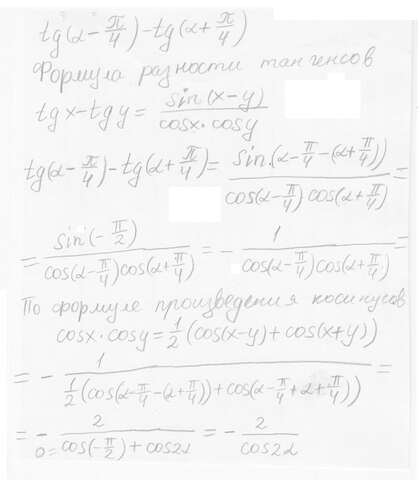 tg(α - π/4) - tg(α + π/4)
Формула разности тангенсов
tg x - tg y = sin(x-y) / cosx·cosy
tg(α - π/4) - tg(α + π/4) = sin(α - π/4 - (α + π/4)) / cos(α - π/4) cos(α + π/4) =
= sin(-π/2) / cos(α - π/4) cos(α + π/4) = - 1 / cos(α - π/4) cos(α + π/4) =
По формуле произведения косинусов
cosx · cosy = 1/2 (cos(x-y) + cos(x+y))
= - 1 / 1/2 (cos(α - π/4 - (α + π/4)) + cos(α - π/4 + α + π/4)) =
= - 2 / 0= cos(-π/2) + cos2α = - 2 / cos2α